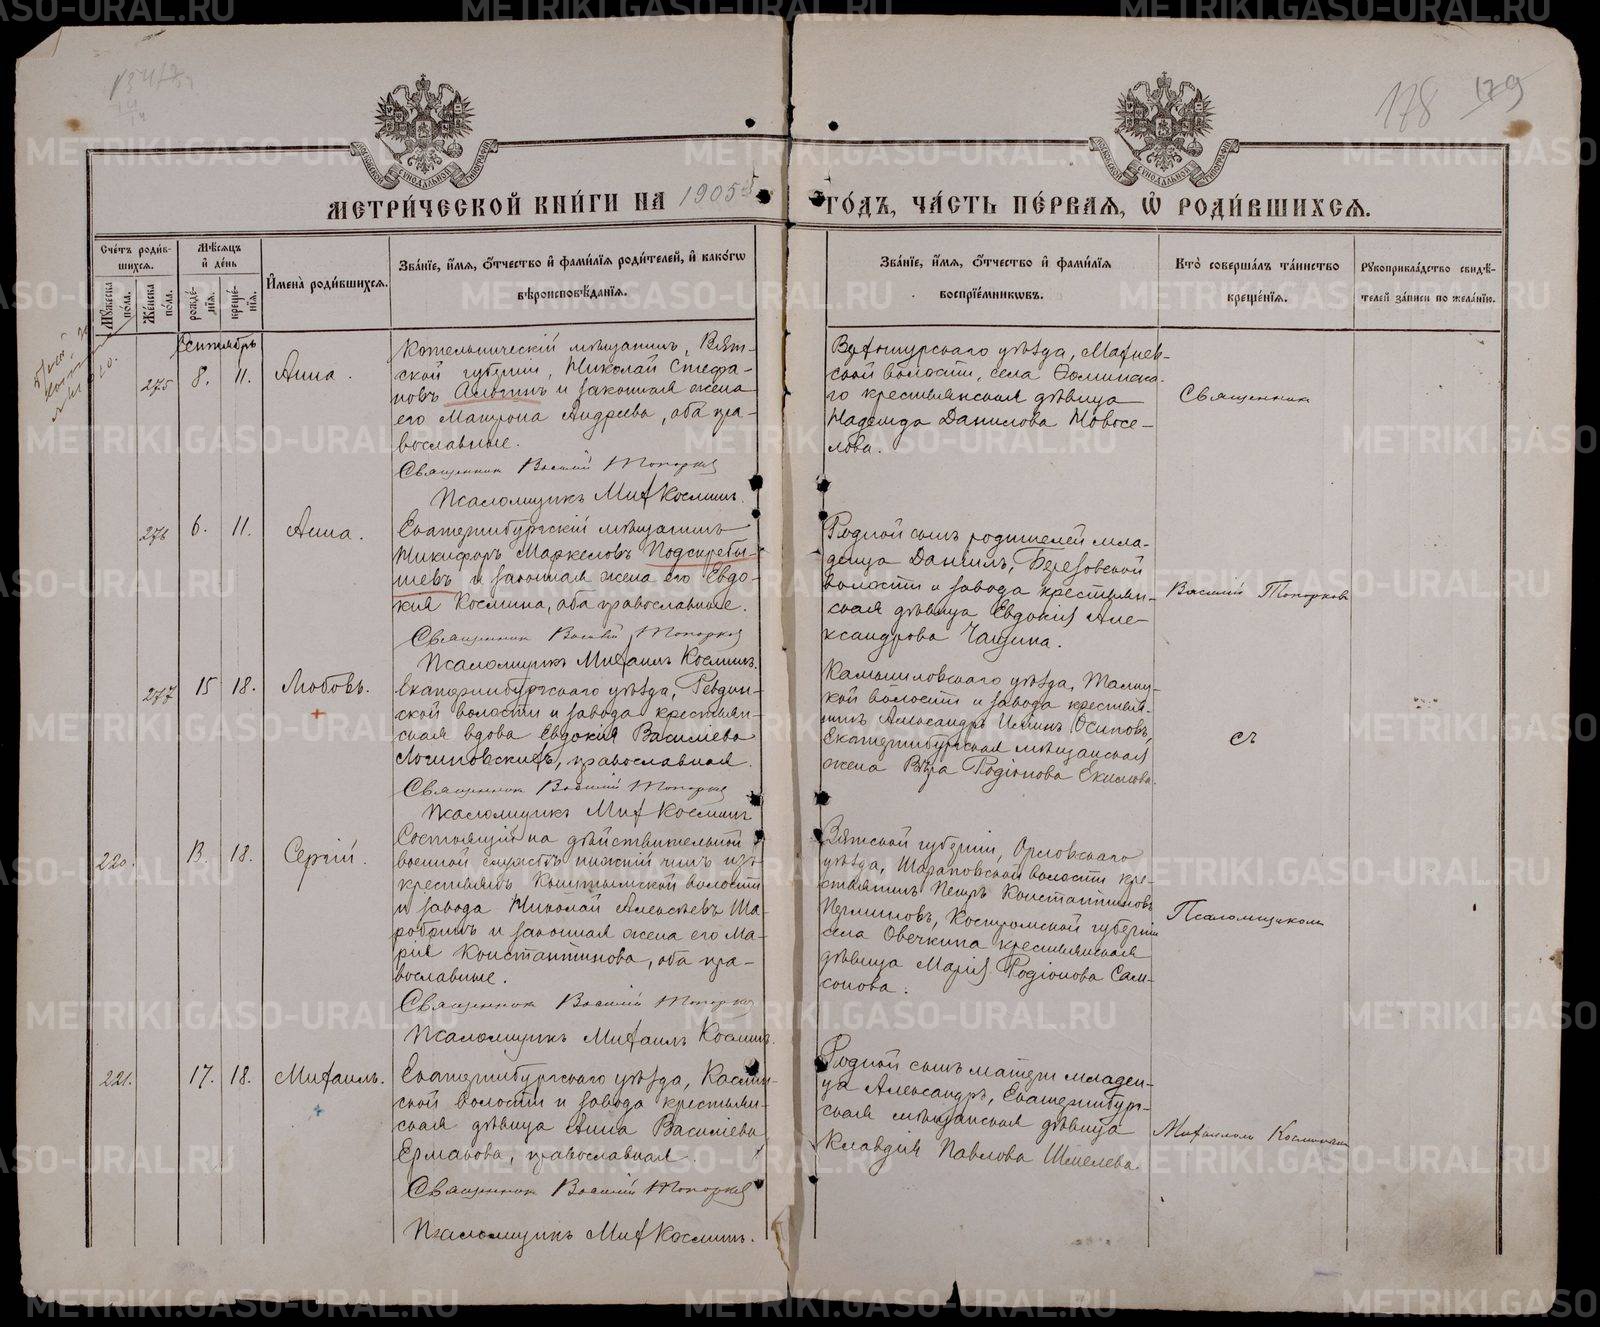 178 179
МЕТРИ́ЧЕСКОЙ КНИ́ГИ НА 1905й ГО́ДЪ, ЧА́СТЬ ПЕ́РВАЯ, Ѽ РОДИ́ВШИХСЯ.
Сче́тъ роди́вшихся.
Мꙋ́жеска по́ла.
Же́нска по́ла.
Мѣ́сяцъ и҆ де́нь
рожде́нїя.
креще́нїя.
И҆мена̀ роди́вшихся.
Зва́нїе, и҆́мя, ѻ҆́тчество и҆ фами́лїя роди́телей, и҆ како́гѡ
вѣроисповѣ́данїя.
Зва́нїе, и҆́мя, ѻ҆́тчество и҆ фами́лїя
воспрїе́мникѡвъ.
Кто̀ соверша́лъ та́инство
креще́нїя.
Рꙋкоприкла́дство свидѣ́-
телей за́писи по жела́нїю.
Сентябрь
275 8. 11. Анна.
Котельническій мѣщанинъ, Вят-
ской губерніи, Николай Стефа-
новъ и законная жена
его Матрона Андреева, оба пра-
вославные.
Священник Василій Топорков
Псаломщикъ Мих Косминъ.
уѣзда,
ской волости, села
го крестьянская дѣвица
Надежда Данилова Новосе-
лова.
Священник
276 6. 11. Анна.
Екатеринбургскій мѣщанинъ
Никифоръ Маркеловъ Подскребы-
шевъ и законная жена его Евдо-
кия Космина, оба православные.
Священник Василій Топорков
Псаломщикъ Михаилъ Косминъ.
Родной сынъ родителей мла-
денца Даніилъ, Березовской
волости и завода крестьян-
ская дѣвица Евдокія Але-
ксандрова Чащина.
Василій Топорков
277 15 18. Любовь.
Екатеринбургскаго уѣзда, Ревдин-
ской волости и завода крестьян-
ская вдова Евдокия Васильева
православная.
Священник Василій Топорков
Псаломщикъ Мих Косминъ
Камышловскаго уѣзда, Талиц-
кой волости и завода крестья-
нинъ Александръ Осиповъ,
Екатеринбургская мѣщанская
жена Вѣра Родіонова
съ
220. 13. 18. Сергій.
Состоящій на дѣйствительной
военной службѣ нижній чинъ изъ
крестьянъ, Кыштымской волости
и завода Николай Алексѣевъ Ша-
робринъ и законная жена его Ма-
рія Константинова, оба пра-
вославные.
Священник Василій Топорков
Псаломщикъ Михаилъ Косминъ.
Вятской губерніи, Орловскаго
уѣзда, Шараповской волости кре-
стьянинъ Петръ Константиновъ
Перминовъ, Костромской губерніи
села Овечкина крестьянская
дѣвица Марія Родіонова Сам-
сонова.
Псаломщиком
221. 17. 18. Михаилъ.
Екатеринбургскаго уѣзда, Каслин-
ской волости и завода крестьян-
ская дѣвица Анна Васильева
Ермакова, православная.
Священник Василій Топорков
Псаломщикъ Мих Косминъ.
Родной сынъ матери младен-
ца Александръ, Екатеринбург-
ская мѣщанская дѣвица
Клавдия Павлова Шмелева.
Михаилом Косминым
METRIKI.GASO-URAL.RU